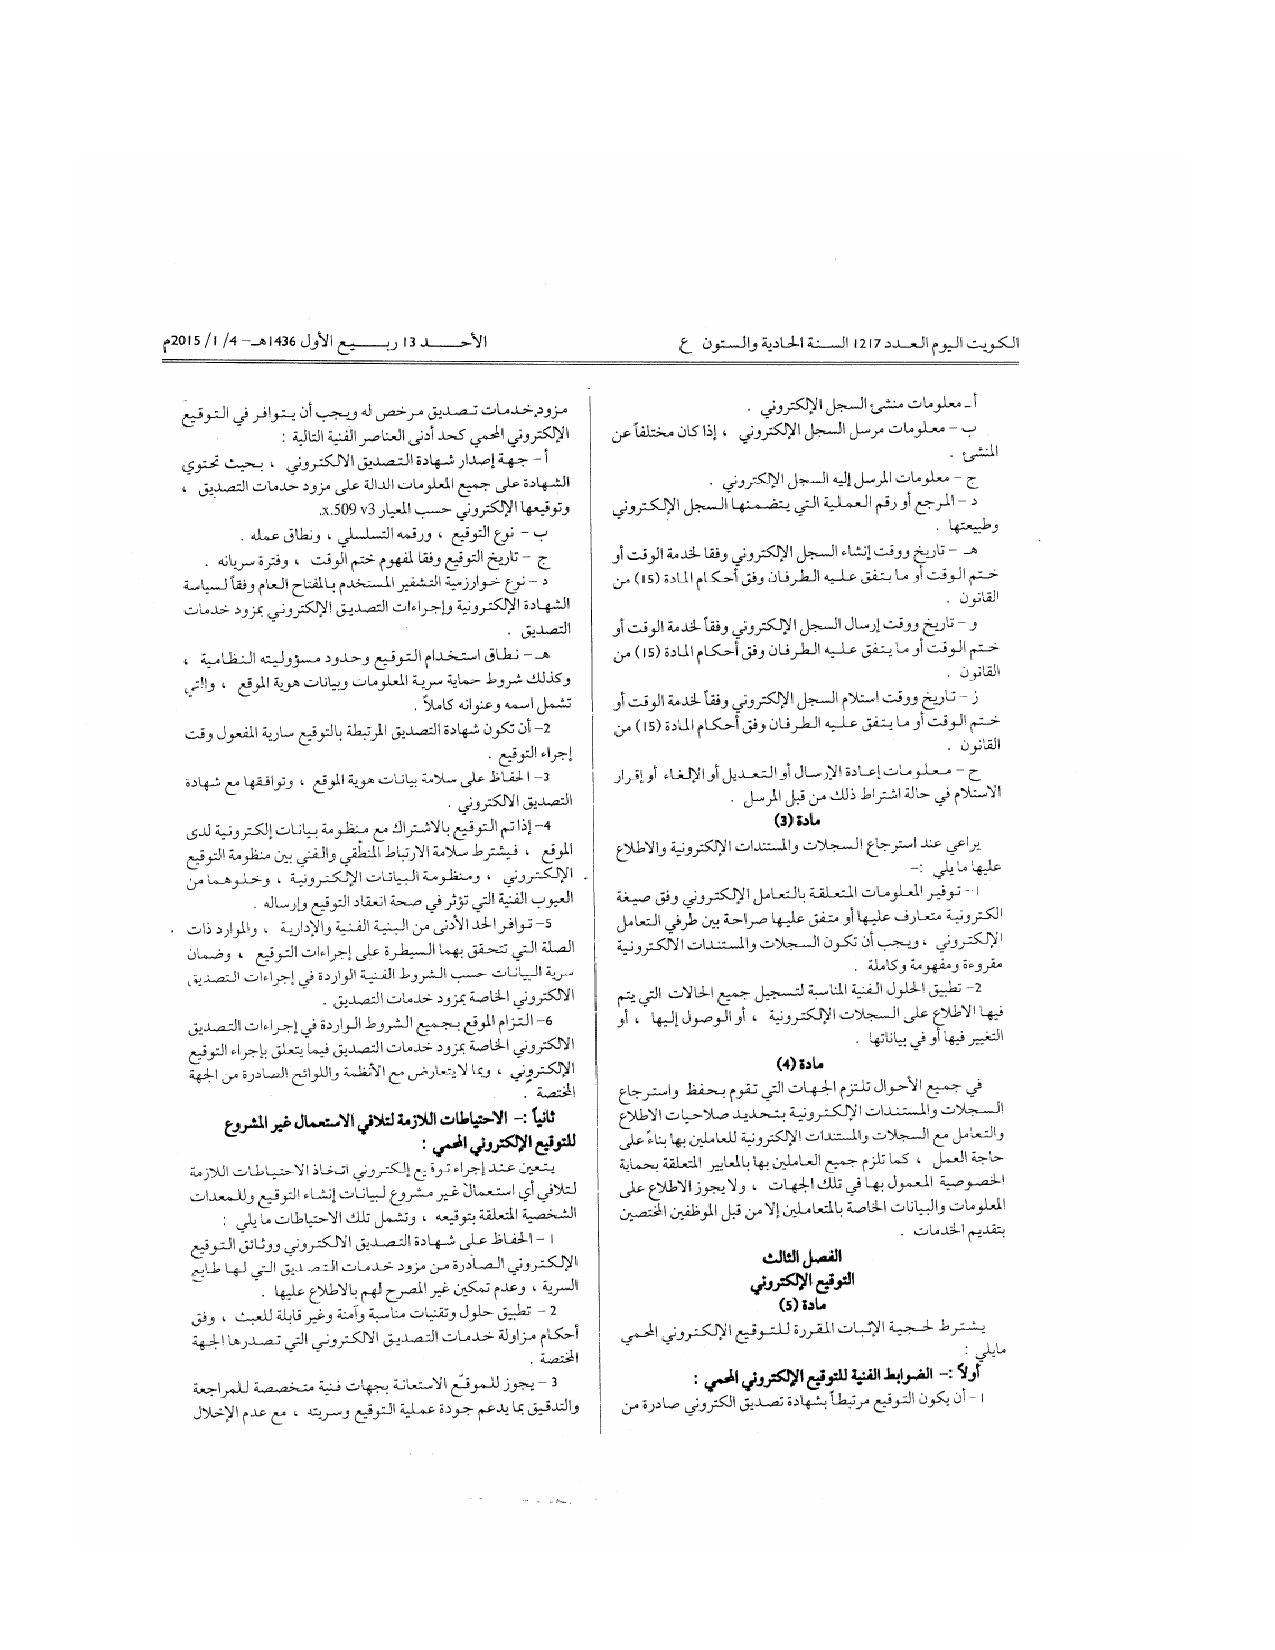 الكويت اليوم العدد 1217 السنة الحادية والستون ع
الأحــــد 13 ربــــيع الأول 1436هـ – 4 /1 /2015م
أ ـ معلومات منشئ السجل الإلكتروني .
ب – معلومات مرسل السجل الإلكتروني ، إذا كان مختلفاً عن
المنشئ .
ج – معلومات المرسل إليه السجل الإلكتروني .
د – المرجع أو رقم العملية التي يتضمنها السجل الإلكتروني
وطبيعتها .
هـ – تاريخ ووقت إنشاء السجل الإلكتروني وفقا لخدمة الوقت أو
ختم الوقت أو ما يتفق عليه الطرفان وفق أحكام المادة (15) من
القانون .
و – تاريخ ووقت إرسال السجل الإلكتروني وفقاً لخدمة الوقت أو
ختم الوقت أو ما يتفق عليه الطرفان وفق أحكام المادة (15) من
القانون .
ز – تاريخ ووقت استلام السجل الإلكتروني وفقاً لخدمة الوقت أو
ختم الوقت أو ما يتفق عليه الطرفان وفق أحكام المادة (15) من
القانون .
ح – معلومات إعادة الإرسال أو التعديل أو الإلغاء أو إقرار
الاستلام في حالة اشتراط ذلك من قبل المرسل .
مادة (3)
يراعي عند استرجاع السجلات والمستندات الإلكترونية والاطلاع
عليها ما يلي :–
1 – توفير المعلومات المتعلقة بالتعامل الإلكتروني وفق صيغة
الكترونية متعارف عليها أو متفق عليها صراحة بين طرفي التعامل
الإلكتروني ، ويجب أن تكون السجلات والمستندات الالكترونية
مقروءة ومفهومة وكاملة .
2– تطبيق الحلول الفنية المناسبة لتسجيل جميع الحالات التي يتم
فيها الاطلاع على السجلات الإلكترونية ، أو الوصول إليها ، أو
التغيير فيها أو في بياناتها .
مادة (4)
في جميع الأحوال تلتزم الجهات التي تقوم بحفظ واسترجاع
السجلات والمستندات الإلكترونية بتحديد صلاحيات الاطلاع
والتعامل مع السجلات والمستندات الالكترونية للعاملين بها بناءً على
حاجة العمل ، كما تلزم جميع العاملين بها بالمعايير المتعلقة بحماية
الخصوصية المعمول بها في تلك الجهات ، ولا يجوز الاطلاع على
المعلومات والبيانات الخاصة بالمتعاملين إلا من قبل الموظفين المختصين
بتقديم الخدمات .
الفصل الثالث
التوقيع الإلكتروني
مادة (5)
يشترط لحجية الإثبات المقررة للتوقيع الإلكتروني المحمي
مايلي :
أولاً :– الضوابط الفنية للتوقيع الإلكتروني المحمي :
1 – أن يكون التوقيع مرتبطاً بشهادة تصديق الكتروني صادرة من
مزود خدمات تصديق مرخص له ويجب أن يتوافر في التوقيع
الإلكتروني المحمي كحد أدنى العناصر الفنية التالية :
أ – جهة إصدار شهادة التصديق الالكتروني ، بحيث تحتوي
الشهادة على جميع المعلومات الدالة على مزود خدمات التصديق ،
وتوقيعها الإلكتروني حسب المعيار x.509 v3.
ب – نوع التوقيع ، ورقمه التسلسلي ، ونطاق عمله .
ج – تاريخ التوقيع وفقا لمفهوم ختم الوقت ، وفترة سريانه .
د – نوع خوارزمية التشفير المستخدم بالمفتاح العام وفقاً لسياسة
الشهادة الإلكترونية وإجراءات التصديق الإلكتروني بمزود خدمات
التصديق .
هـ – نطاق استخدام التوقيع وحدود مسؤوليته النظامية ،
وكذلك شروط حماية سرية المعلومات وبيانات هوية الموقع ، والتي
تشمل اسمه وعنوانه كاملاً .
2– أن تكون شهادة التصديق المرتبطة بالتوقيع سارية المفعول وقت
إجراء التوقيع .
3– الحفاظ على سلامة بيانات هوية الموقع ، وتوافقها مع شهادة
التصديق الالكتروني .
4– إذا تم التوقيع بالاشتراك مع منظومة بيانات إلكترونية لدى
الموقع ، فيشترط سلامة الارتباط المنطقي والفني بين منظومة التوقيع
الإلكتروني ، ومنظومة البيانات الإلكترونية ، وخلوهما من
العيوب الفنية التي تؤثر في صحة انعقاد التوقيع وإرساله .
5– توافر الحد الأدنى من البنية الفنية والإدارية ، والموارد ذات
الصلة التي تتحقق بهما السيطرة على إجراءات التوقيع ، وضمان
سرية البيانات حسب الشروط الفنية الواردة في إجراءات التصديق
الالكتروني الخاصة بمزود خدمات التصديق .
6– التزام الموقع بجميع الشروط الواردة في إجراءات التصديق
الالكتروني الخاصة بمزود خدمات التصديق فيما يتعلق بإجراء التوقيع
الإلكتروني ، وبما لا يتعارض مع الأنظمة واللوائح الصادرة من الجهة
المختصة .
ثانياً :– الاحتياطات اللازمة لتلافي الاستعمال غير المشروع
للتوقيع الإلكتروني المحمي :
يتعين عند إجراء توقيع إلكتروني اتخاذ الاحتياطات اللازمة
لتلافي أي استعمال غير مشروع لبيانات إنشاء التوقيع وللمعدات
الشخصية المتعلقة بتوقيعه ، وتشمل تلك الاحتياطات ما يلي :
1 – الحفاظ على شهادة التصديق الالكتروني ووثائق التوقيع
الإلكتروني الصادرة من مزود خدمات التصديق التي لها طابع
السرية ، وعدم تمكين غير المصرح لهم بالاطلاع عليها .
2 – تطبيق حلول وتقنيات مناسبة وآمنة وغير قابلة للعبث ، وفق
أحكام مزاولة خدمات التصديق الالكتروني التي تصدرها الجهة
المختصة .
3 – يجوز للموقع الاستعانة بجهات فنية متخصصة للمراجعة
والتدقيق بما يدعم جودة عملية التوقيع وسريته ، مع عدم الإخلال